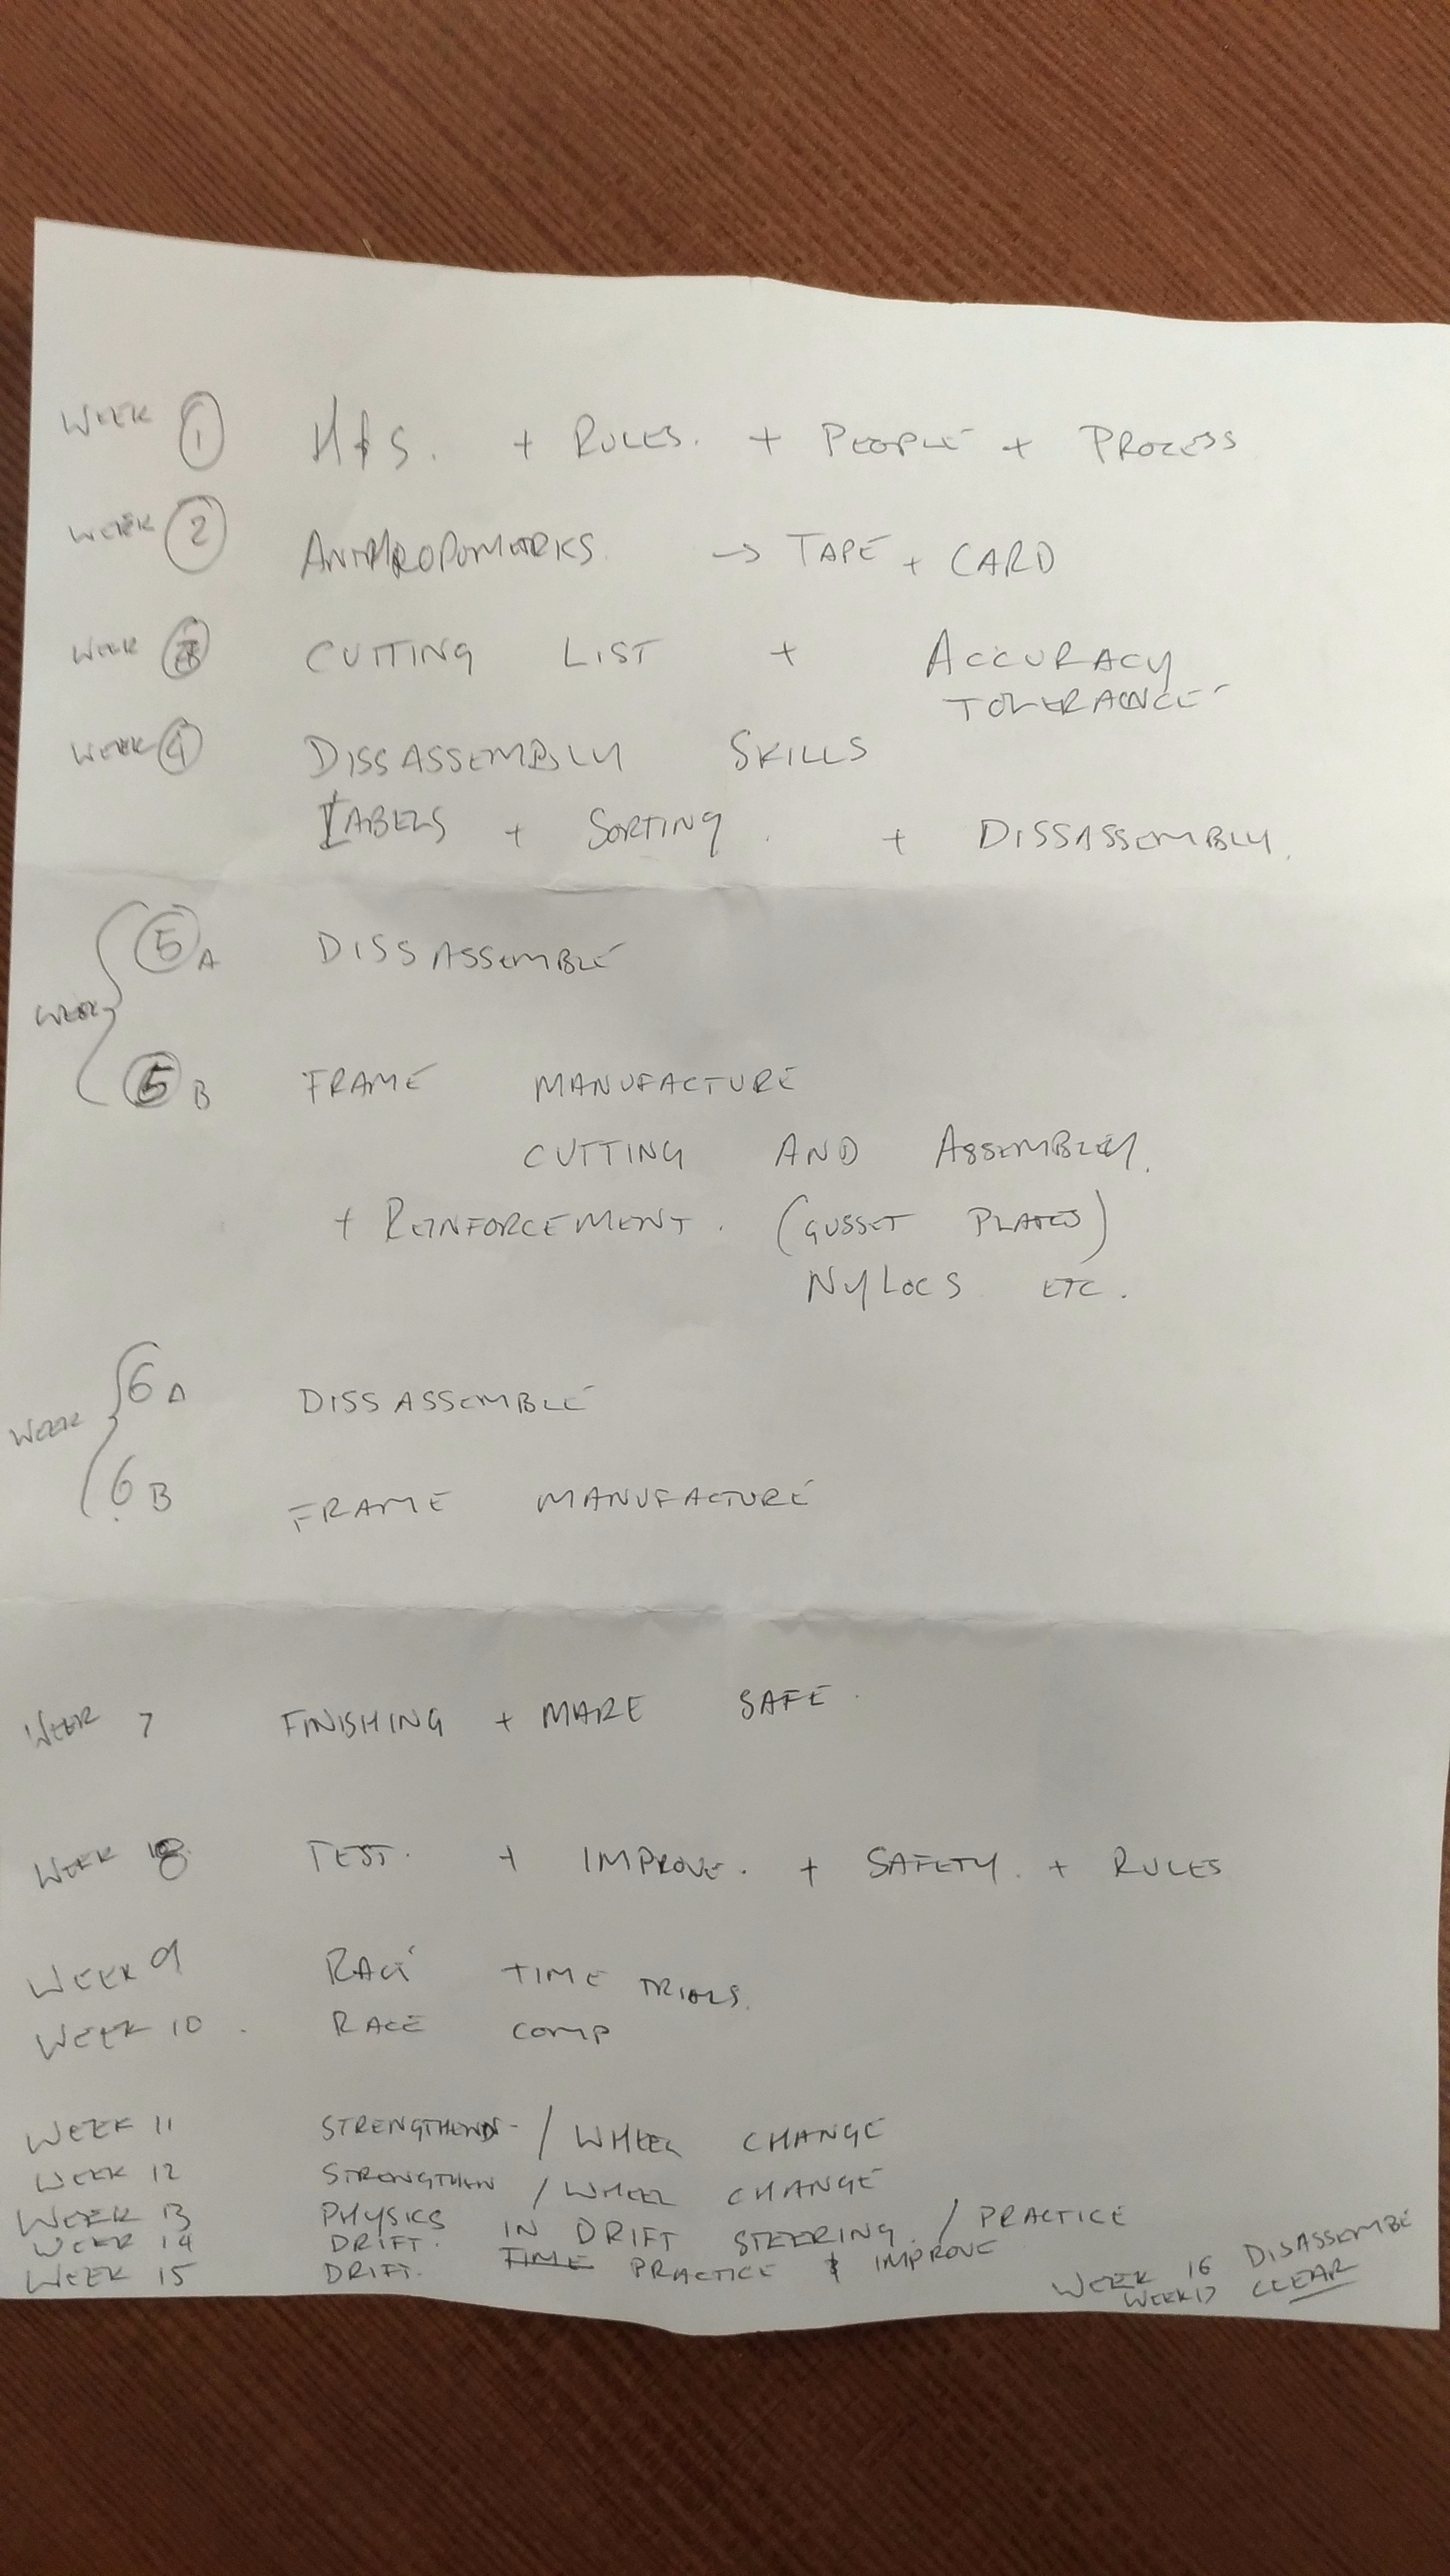 WEEK 1 H+S. + RULES. + PEOPLE + PROCESS
WEEK 2 → TAPE + CARD
WEEK 3 CUTTING LIST + ACCURACY
TOLERANCE.
WEEK 4 DISSASSEMBLY SKILLS
LABELS + SORTING. + DISSASSEMBLY.
WEEK 5 A DISSASSEMBLE
5 B FRAME MANUFACTURE
CUTTING AND ASSEMBLY.
+ REINFORCEMENT. (GUSSET PLATES)
NYLOCS ETC.
WEEK 6 A DISSASSEMBLE
6 B FRAME MANUFACTURE
WEEK 7 FINISHING + MAKE SAFE.
WEEK 8 TEST. + IMPROVE. + SAFETY. + RULES
WEEK 9 RACE TIME TRIALS.
WEEK 10. RACE COMP
WEEK 11 STRENGTHEN / WHEEL CHANGE
WEEK 12 STRENGTHEN / WHEEL CHANGE
WEEK 13 PHYSICS IN DRIFT STEERING. / PRACTICE
WEEK 14 DRIFT. TIME PRACTICE & IMPROVE
WEEK 15 DRIFT.
WEEK 16 DISASSEMBLE
WEEK 17 CLEAR